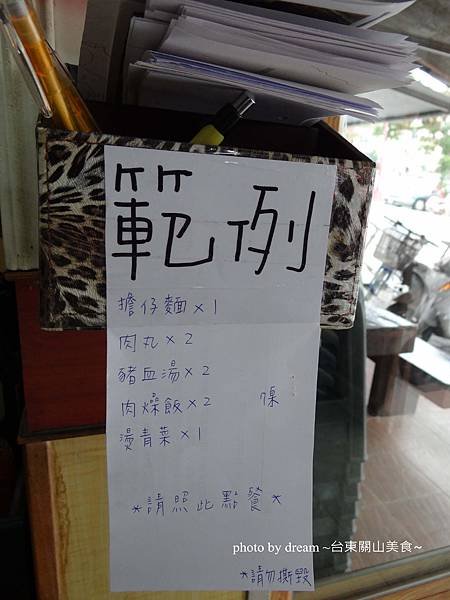 範例
擔仔麵×1
肉丸×2
豬血湯×2
肉燥飯×2
燙青菜×1
*請照此點餐*
*請勿撕毀
photo by dream ~台東關山美食~